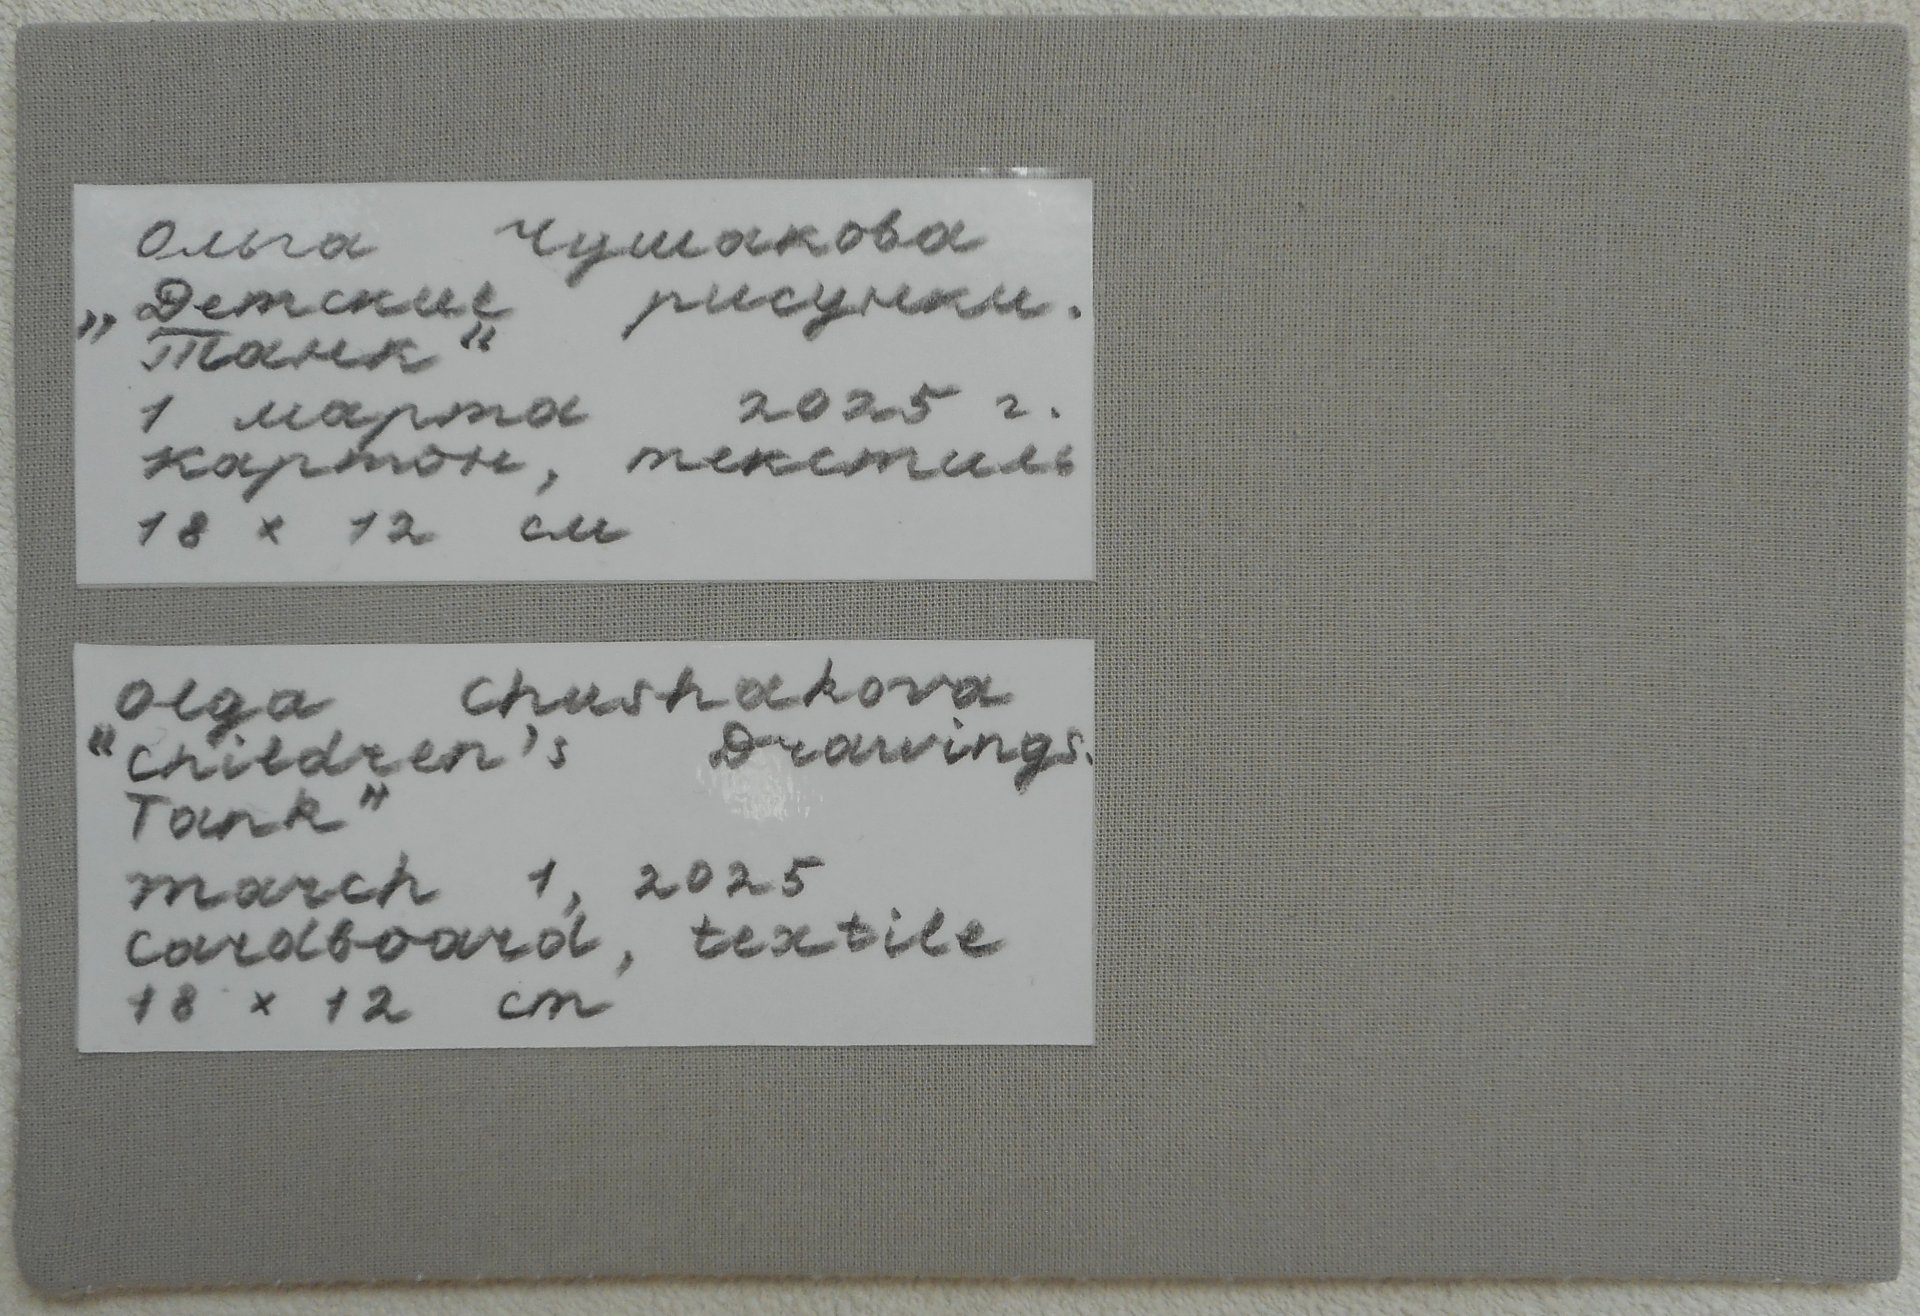 Ольга Чушакова
„Детские рисунки.
Танк“
1 марта 2025 г.
картон, текстиль
18 × 12 см
Olga Chushakova
“Children's Drawings.
Tank”
march 1, 2025
cardboard, textile
18 × 12 cm